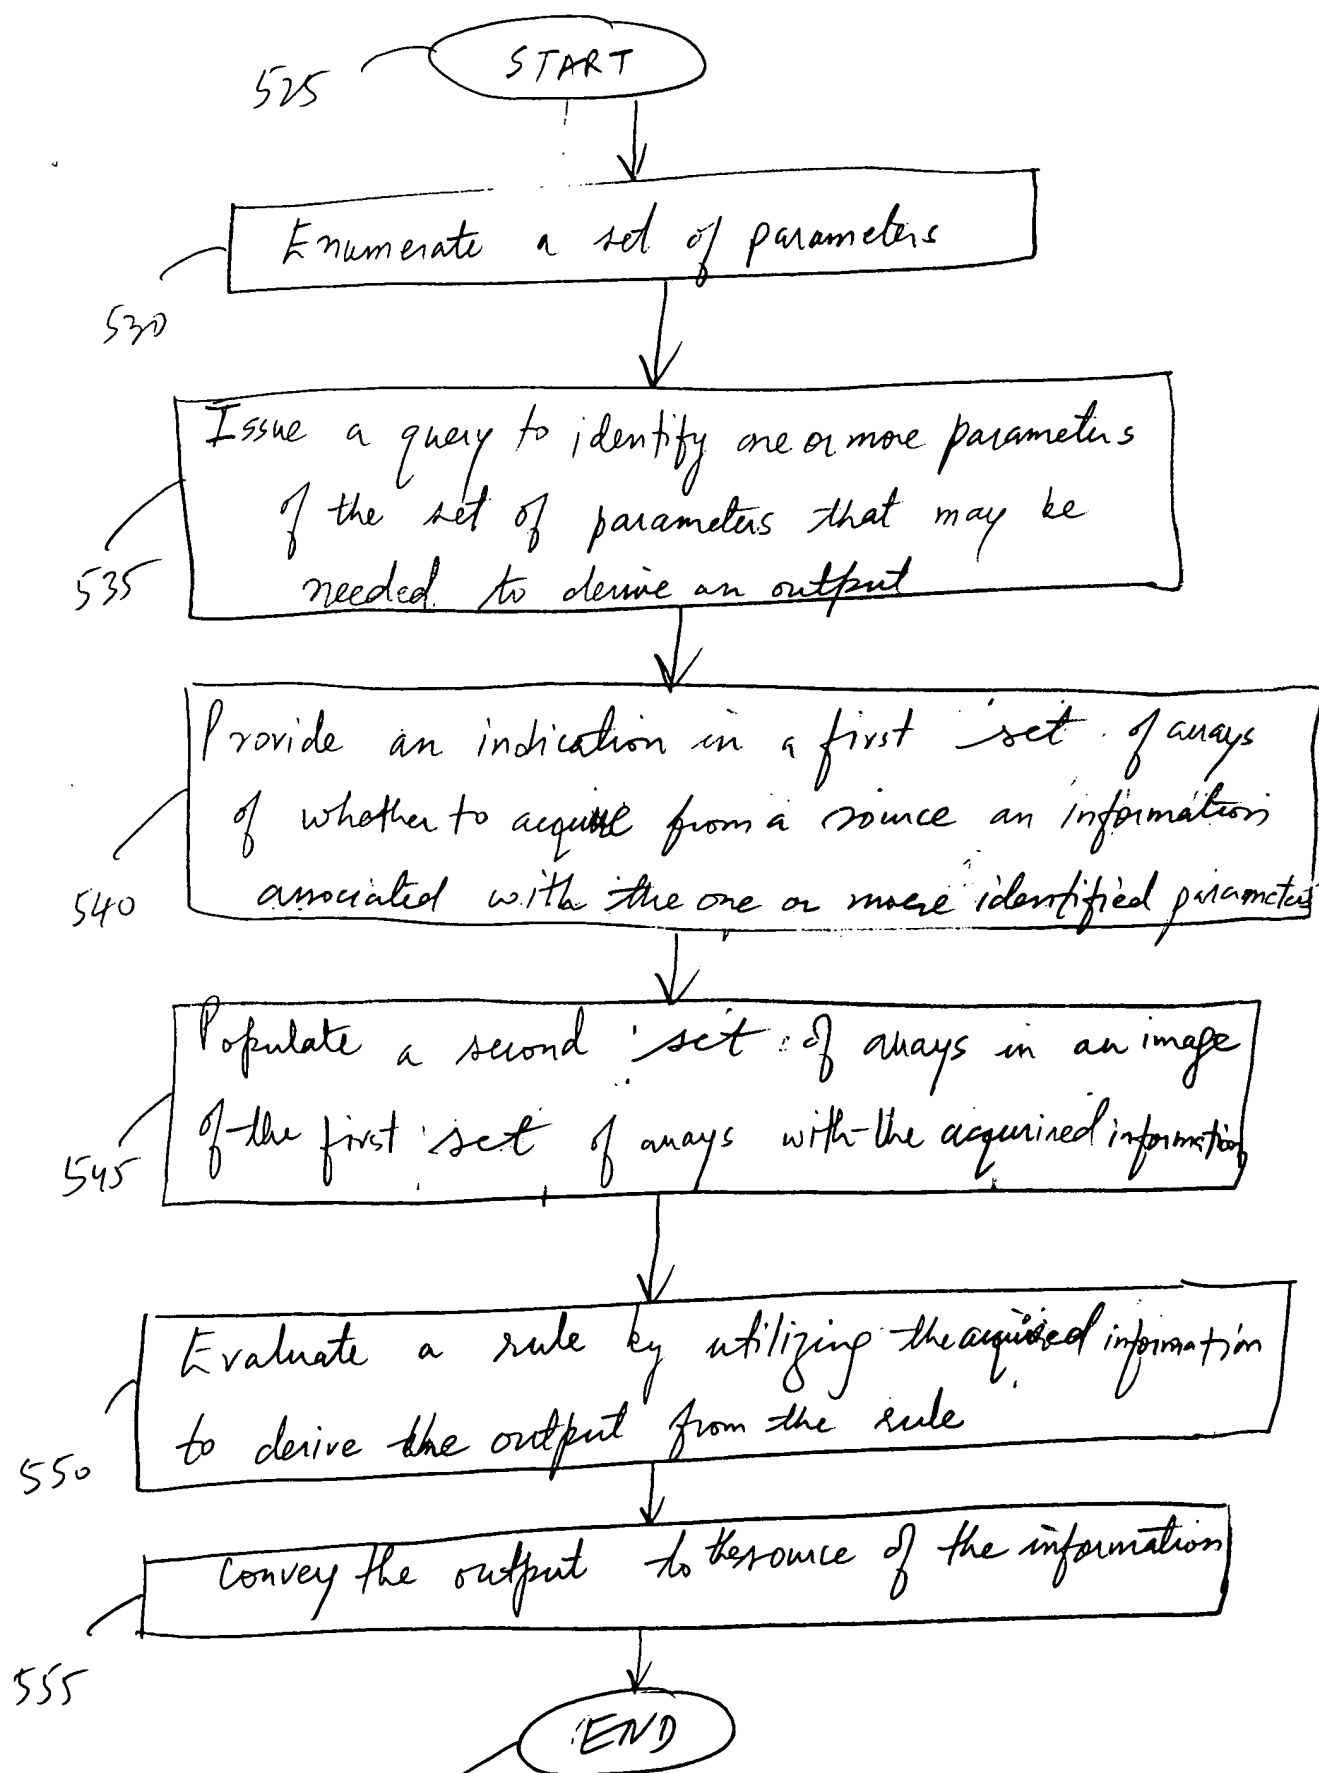 START
525
Enumerate a set of parameters
530
Issue a query to identify one or more parameters
of the set of parameters that may be
needed to derive an output
535
Provide an indication in a first set of arrays
of whether to acquire from a source an information
associated with the one or more identified parameters
540
Populate a second set of arrays in an image
of the first set of arrays with the acquired information
545
Evaluate a rule by utilizing the acquired information
to derive the output from the rule
550
Convey the output to the source of the information
555
END